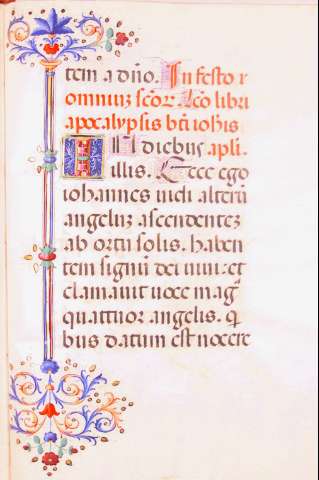 tem a dño. In festo ꝛ
omniuꝫ sc̃oꝝ. Lc̃o libri
apocalypsis bt̃i ioħis
IN diebus apli.
illis. Ecce ego
iohannes uidi alterũ
angeluꝫ ascendenteꝫ
ab ortu solis. haben
tem signũ dei uiui: et
clamauit uoce mag̃
quattuor angelis. q̃
bus datum est nocere